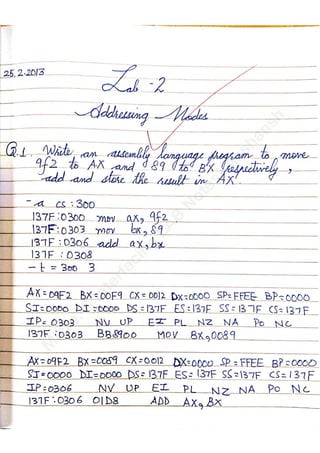 25.2.2013
Lab-2
Addressing Modes
Q.1. Write an assembly language program to move
9f2 to AX and 89 to BX respectively,
add and store the result in AX.
-a cs:300
137F:0300 mov ax, 9f2
137F:0303 mov bx, 89
137F:0306 add ax, bx
137F:0308
-t = 300 3
AX=09F2 BX=00F9 CX=0012 DX=0000 SP=FFEE BP=0000
SI=0000 DI=0000 DS=137F ES=137F SS=137F CS=137F
IP=0303 NV UP EI PL NZ NA PO NC
137F:0303 BB8900 MOV BX,0089
AX=09F2 BX=0089 CX=0012 DX=0000 SP=FFEE BP=0000
SI=0000 DI=0000 DS=137F ES=137F SS=137F CS=137F
IP=0306 NV UP EI PL NZ NA PO NC
137F:0306 01D8 ADD AX,BX